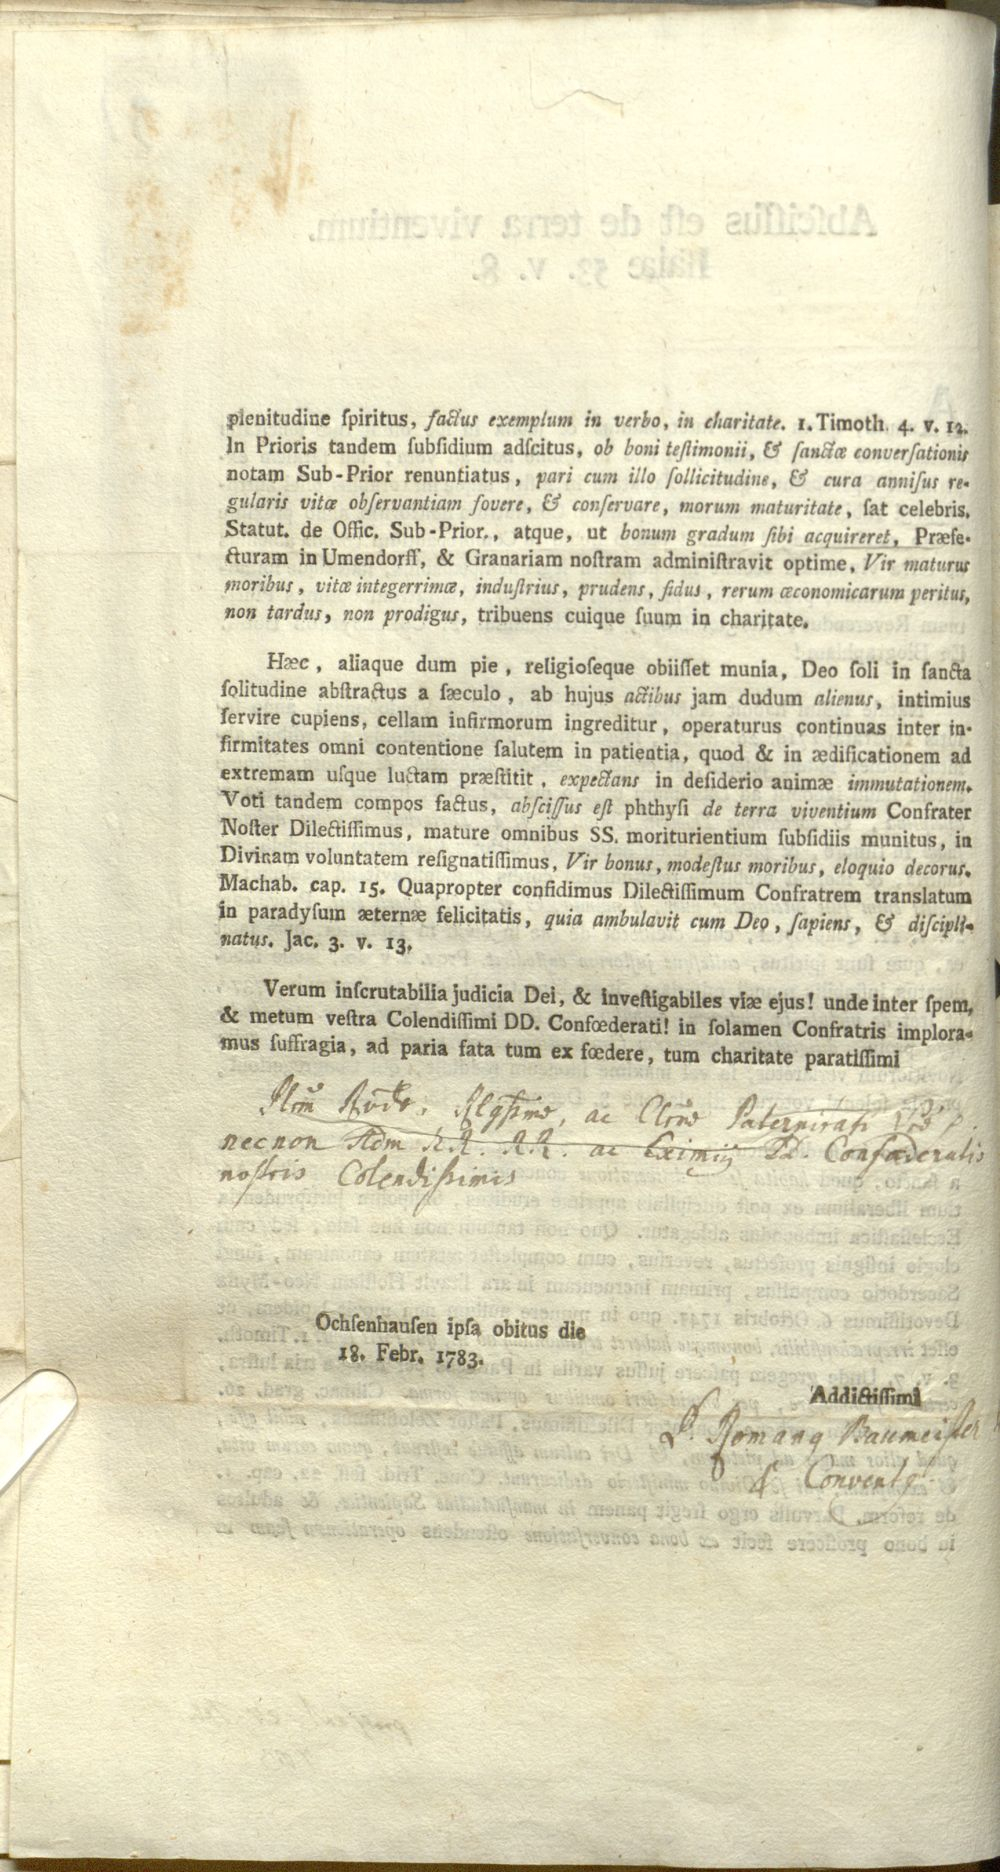 plenitudine ſpiritus, factus exemplum in verbo, in charitate. 1. Timoth. 4. v. 12.
In Prioris tandem ſubſidium adſcitus, ob boni teſtimonii, & ſanctæ converſationis
notam Sub-Prior renuntiatus, pari cum illo ſollicitudine, & cura anniſus re-
gularis vitæ obſervantiam fovere, & conſervare, morum maturitate, ſat celebris.
Statut. de Offic. Sub-Prior., atque, ut bonum gradum ſibi acquireret, Præfe-
cturam in Umendorff, & Granariam noſtram adminiſtravit optime, Vir maturus
moribus, vitæ integerrimæ, induſtrius, prudens, fidus, rerum œconomicarum peritus,
non tardus, non prodigus, tribuens cuique ſuum in charitate.
Hæc, aliaque dum pie, religioſeque obiiſſet munia, Deo ſoli in ſancta
ſolitudine abſtractus a ſæculo, ab hujus actibus jam dudum alienus, intimius
ſervire cupiens, cellam infirmorum ingreditur, operaturus continuas inter in-
firmitates omni contentione ſalutem in patientia, quod & in ædificationem ad
extremam uſque luctam præſtitit, expectans in deſiderio animæ immutationem.
Voti tandem compos factus, abſciſſus eſt phthyſi de terra viventium Confrater
Noſter Dilectiſſimus, mature omnibus SS. moriturientium ſubſidiis munitus, in
Divinam voluntatem reſignatiſſimus, Vir bonus, modeſtus moribus, eloquio decorus.
Machab. cap. 15. Quapropter confidimus Dilectiſſimum Confratrem translatum
in paradyſum æternæ felicitatis, quia ambulavit cum Deo, ſapiens, & diſcipli-
natus. Jac. 3. v. 13.
Verum inſcrutabilia judicia Dei, & inveſtigabiles viæ ejus! unde inter ſpem,
& metum veſtra Colendiſſimi DD. Confœderati! in ſolamen Confratris implora-
mus ſuffragia, ad paria fata tum ex fœdere, tum charitate paratiſſimi
ac
necnon Adm R.R. A.R. ac Eximiis Confæderatis
noſtris Colendiſſimis
Ochſenhauſen ipſa obitus die
18. Febr. 1783.
Addictiſſimi
Baumeiſter
& Convent